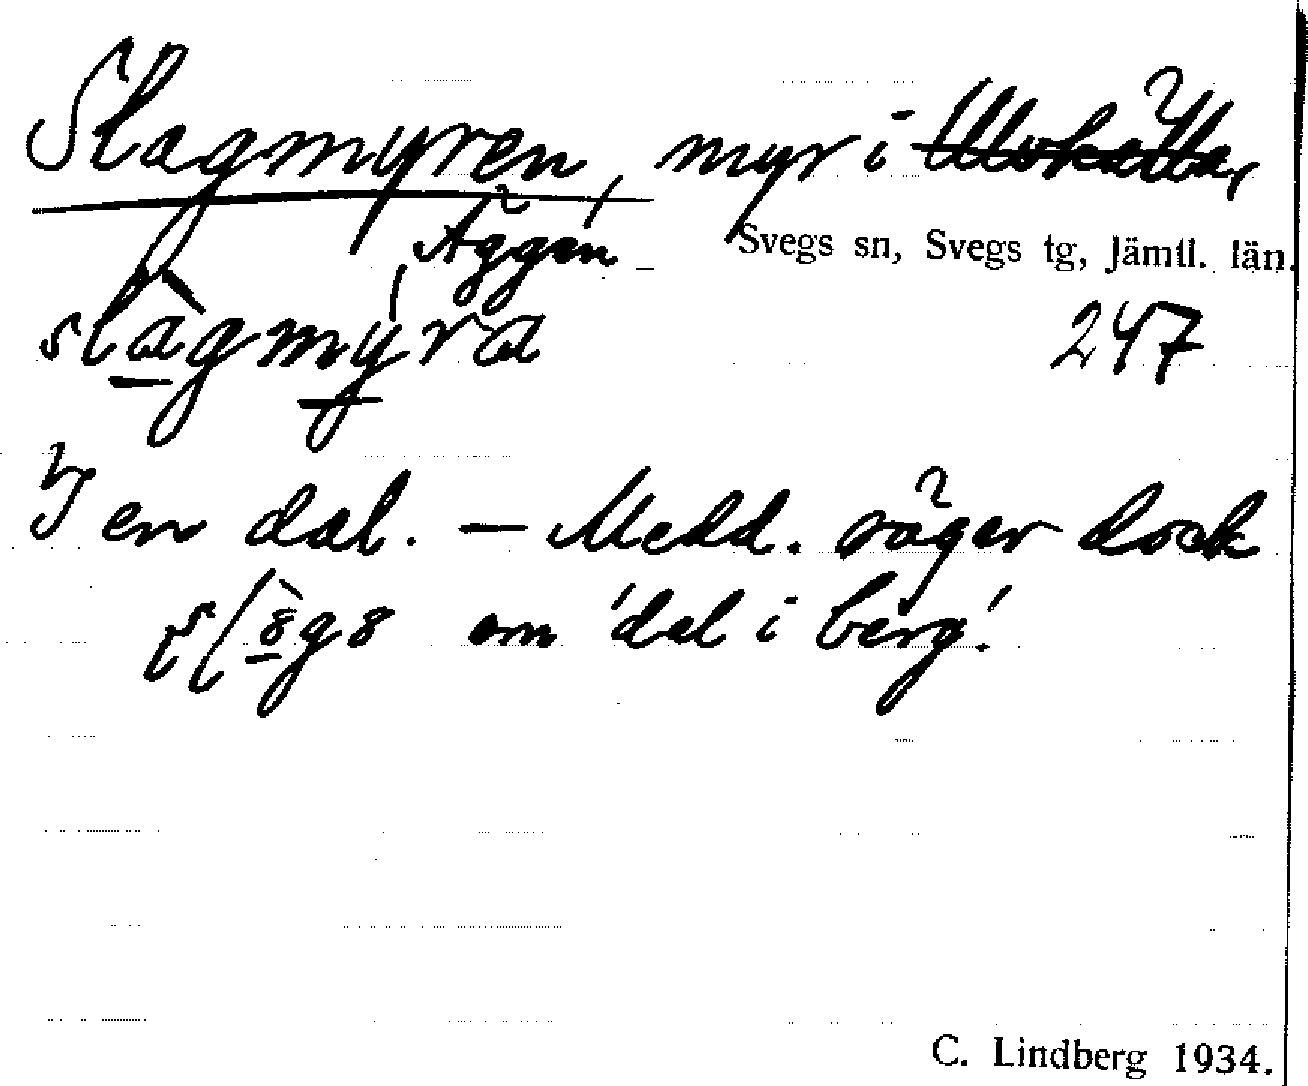 Slagmyren, myr i Ulvkälla,
Äggen Svegs sn, Svegs tg, Jämtl. län.
slagmyra 247
I en dal. — Medd. säger dock
om 'dal i berg'.
C. Lindberg 1934.